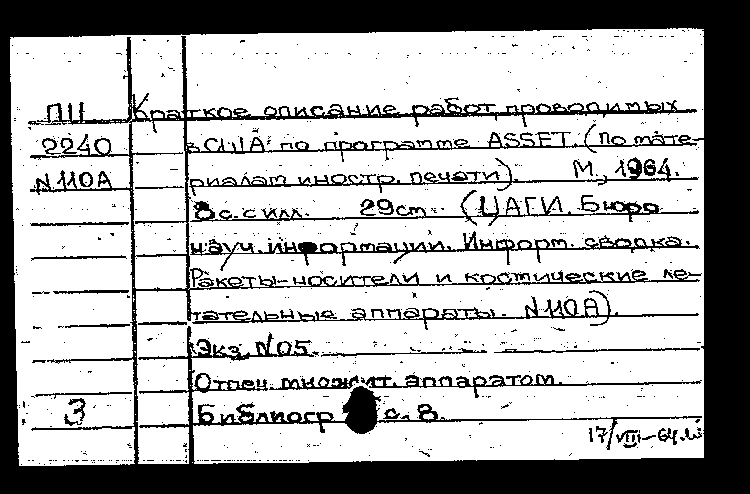 ПII Краткое описание работ, проводимых
2240 в США по программе ASSET. (По мате-
N 110A риалам иностр. печати). М., 1964.
8 с. с илл. 29 cm. (ЦАГИ. Бюро
науч. информации. Информ. сводка.
Ракеты-носители и космические ле-
тательные аппараты. N 110A).
Экз. N 05.
Отпеч. множит. аппаратом.
3 Библиогр с. 8.
17/VIII-64